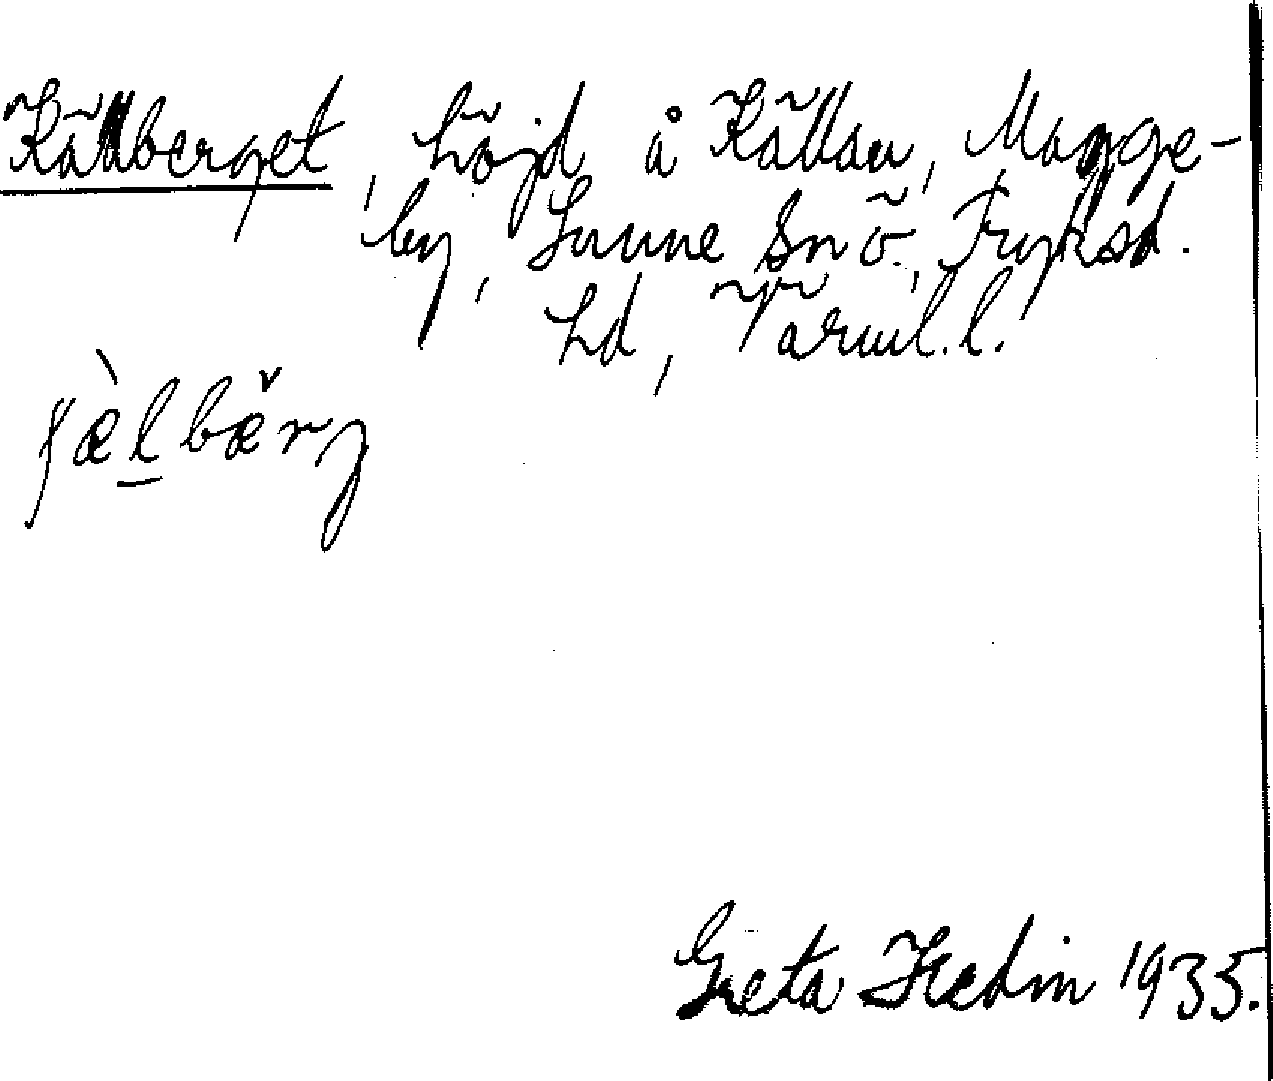 Källberget, höjd å Källan, Magge-
by, Sunne Snö., Fryksd.
hd, Värml.l.
ɟæ̀l̠bæ̌rg
Greta Hedin 1935.